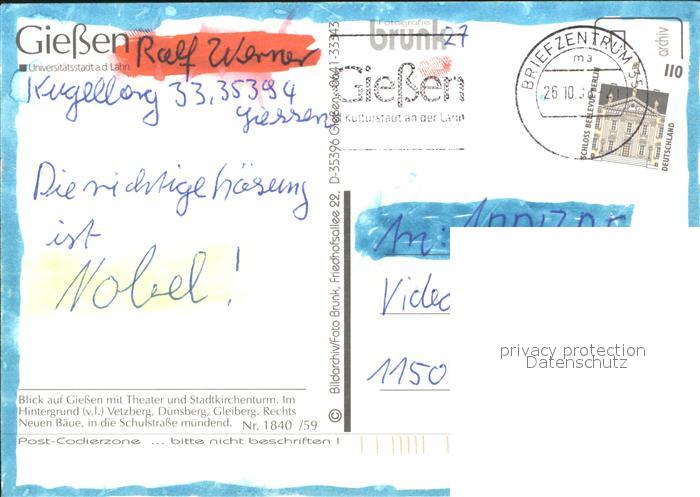 Gießen
Universitätsstadt a.d. Lahn
Ralf Werner
Kugelberg 33, 35394
Giessen
Die richtige Lösung
ist
Nobel!
Blick auf Gießen mit Theater und Stadtkirchenturm. Im
Hintergrund (v.l.) Vetzberg, Dünsberg, Gleiberg. Rechts
Neuen Bäue, in die Schulstraße mündend. Nr. 1840 /59
Post-Codierzone ... bitte nicht beschriften !
© Bildarchiv/Foto Brunk, Friedhofsallee 22, D-35396 Gießen, 0641-33343
Fotografie
brunk
27
Gießen
Kulturstadt an der Lahn
BRIEFZENTRUM 35
ma
26.10.
archiv
110
SCHLOSS BELLEVUE BERLIN
DEUTSCHLAND
An:
Video
1150
privacy protection
Datenschutz